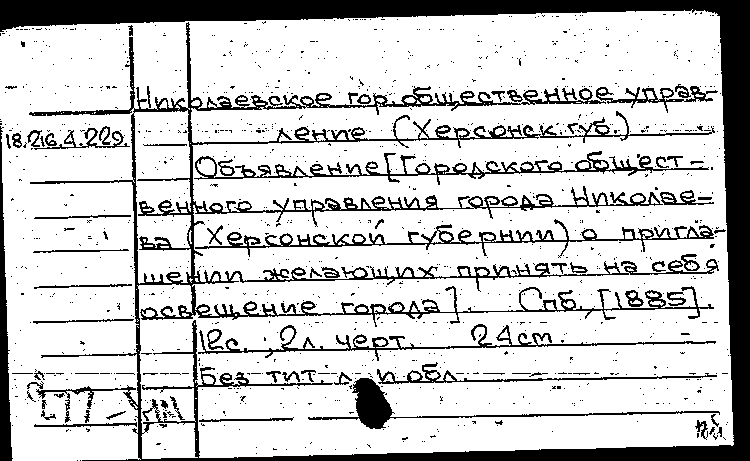 Николаевское гор. общественное управ-
18.216.4.229. ление (Херсонск. губ.)
Объявление [Городского общест-
венного управления города Николае-
ва (Херсонской губернии) о пригла-
шении желающих принять на себя
освещение города]. Спб., [1885].
12с., 2л. черт. 24cm.
Без тит. л. и обл.